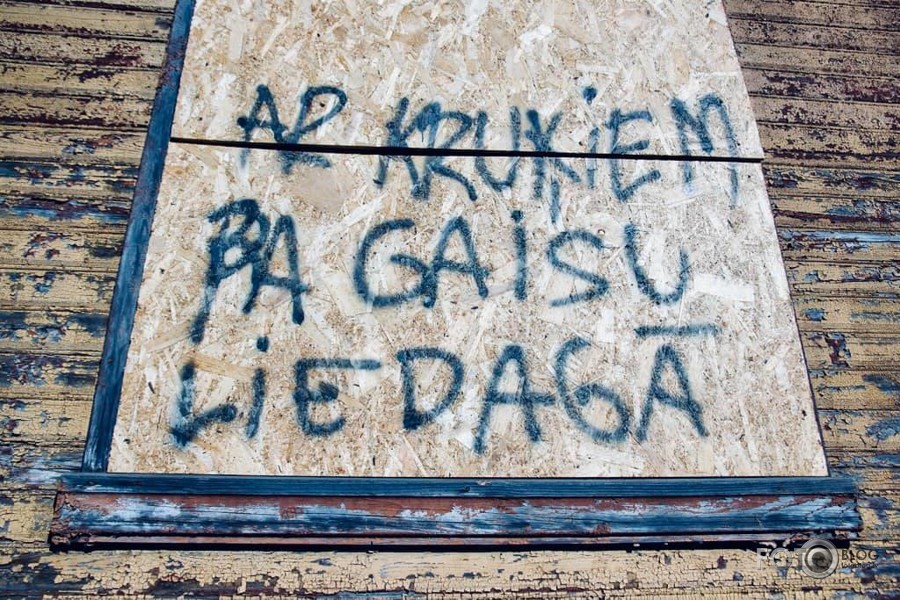 AR KRUĶIEM
PA GAISU
LIEDAGĀ
BLOG